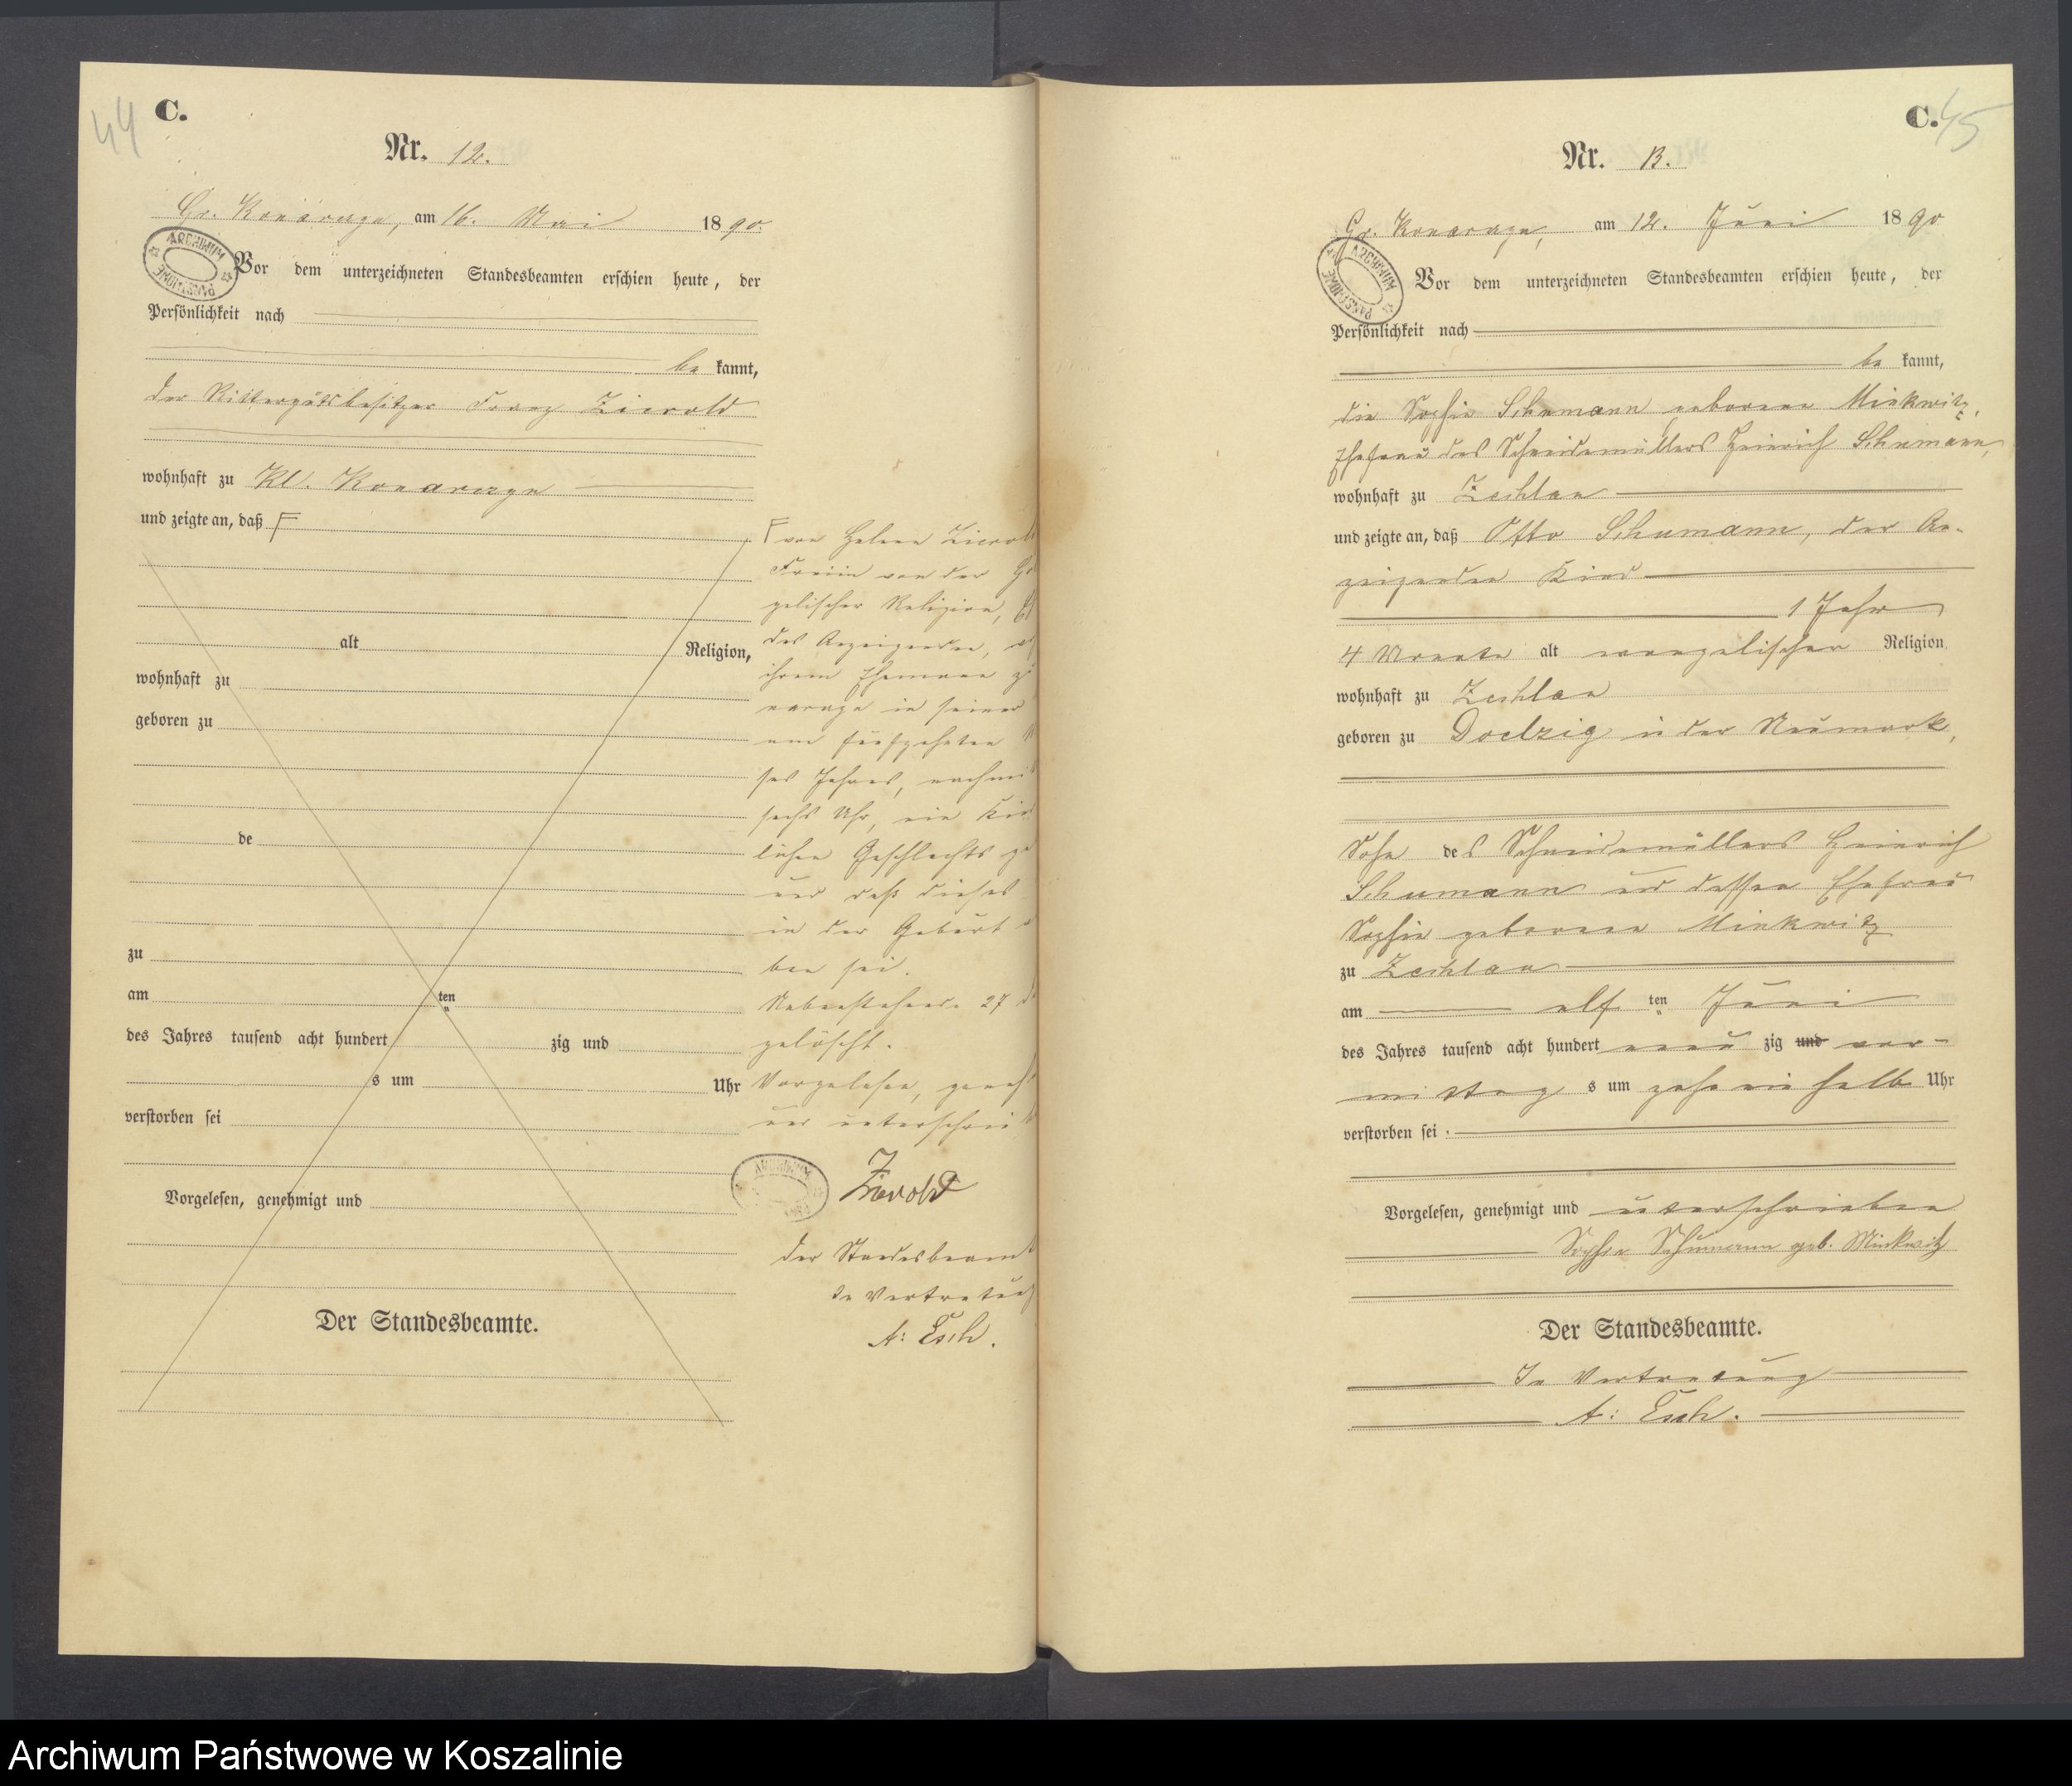 44
C.
Nr. 12.
Gr. Konarzyn, am 16. Mai 1890.
ARCHIWUM PAŃSTWOWE
Vor dem unterzeichneten Standesbeamten erschien heute, der
Persönlichkeit nach
be kannt,
der Rittergutsbesitzer Franz Zierold
wohnhaft zu Kl. Konarzyn
und zeigte an, daß F
alt Religion,
wohnhaft zu
geboren zu
de
zu
am ten
des Jahres tausend acht hundert zig und
s um Uhr
verstorben sei
Vorgelesen, genehmigt und
Der Standesbeamte.
F von Helene Zierol
Freiin von der Go
gelischer Religion, E
des Anzeigenden,
ihrem Ehemann z
narzyn in seiner
am fünfzehnten M
ses Jahres, nachmit
sechs Uhr, ein Kin
lichen Geschlechts ge
und daß dieses
in der Geburt
ben sei.
Nebenstehende 27 D
gelöscht.
Vorgelesen, geneh
und unterschrie
ARCHIWUM
Zierold
Der Standesbeamt
In Vertretung
A: Esch.
C. 45
Nr. 13.
Gr. Konarzyn, am 12. Juni 1890
ARCHIWUM PAŃSTWOWE
Vor dem unterzeichneten Standesbeamten erschien heute, der
Persönlichkeit nach
be kannt,
die Sophie Schumann geborene Minkwitz,
Ehefrau des Schneidemüllers Heinrich Schumann,
wohnhaft zu Zechlau
und zeigte an, daß Otto Schumann, der An-
zeigenden Kind
1 Jahr
4 Monate alt evangelischer Religion,
wohnhaft zu Zechlau
geboren zu Doelzig in der Neumark,
Sohn des Schneidemüllers Heinrich
Schumann und dessen Ehefrau
Sophie geborene Minkwitz
zu Zechlau
am elf ten Juni
des Jahres tausend acht hundert neun zig und vor-
mittag s um zehn ein halb Uhr
verstorben sei.
Vorgelesen, genehmigt und unterschrieben
Sophie Schumann geb. Minkwitz
Der Standesbeamte.
In Vertretung
A: Esch.
Archiwum Państwowe w Koszalinie